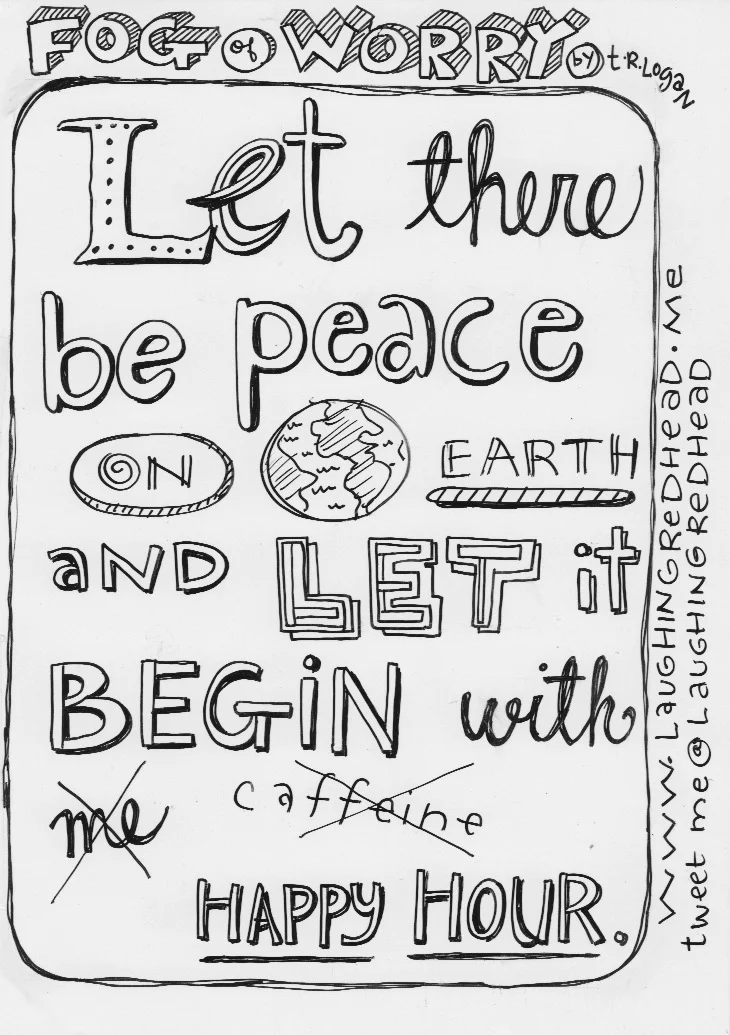 FOG of WORRY by t.R.LOgaN
Let there
be peace
ON EARTH
aND LET it
BEGiN with
me caffeine
HAPPY HOUR.
www.LaUGHiNGReDHeaD.Me
tweet me@LaUGHiNGReDHeaD